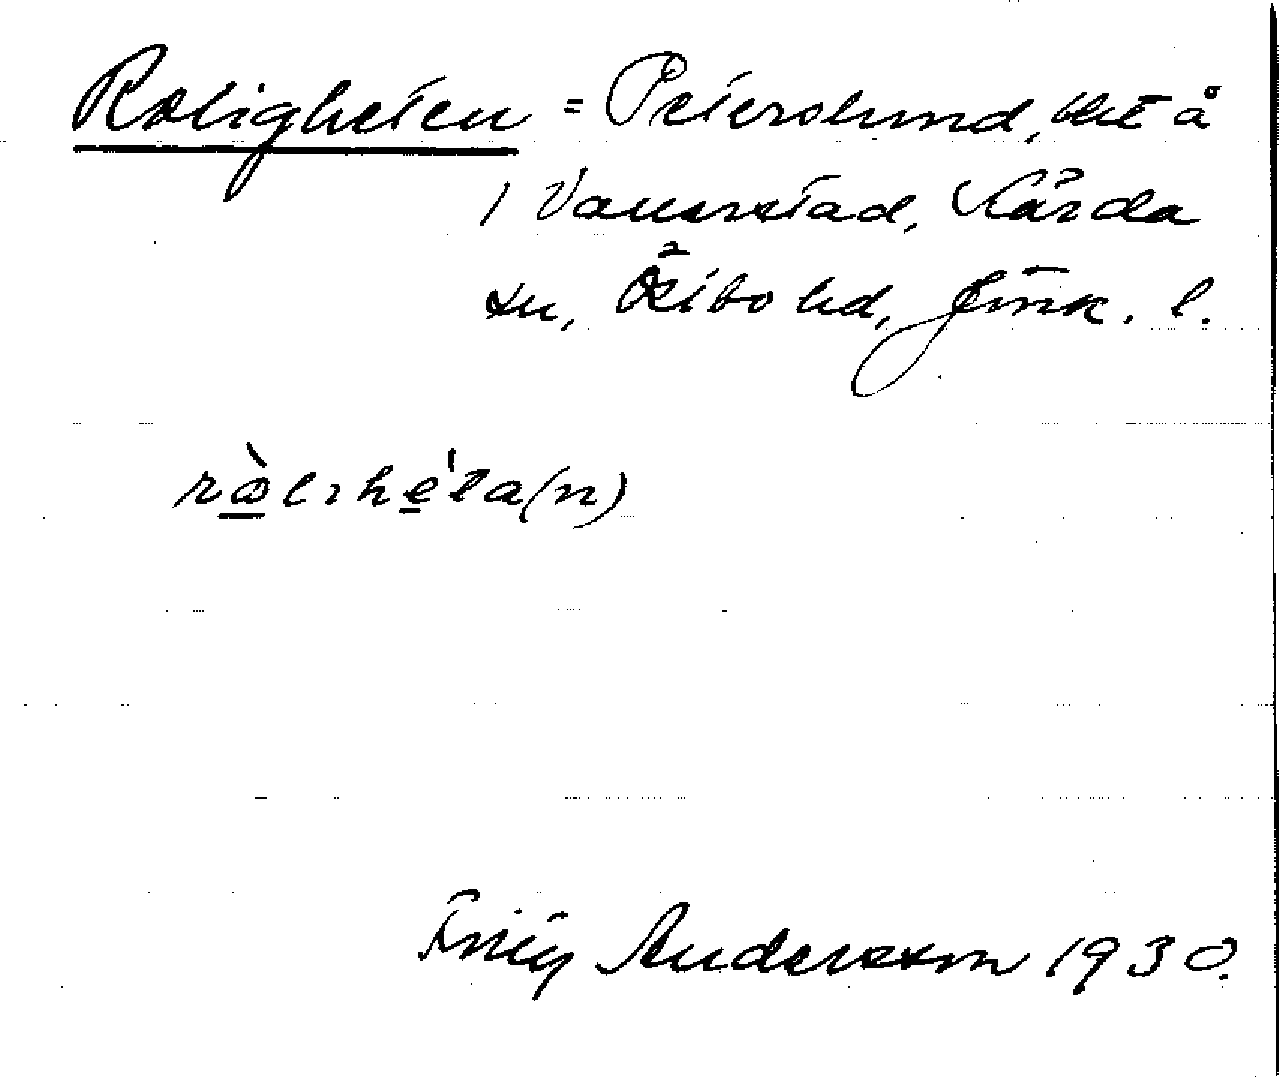 Roligheten = Peterslund, lht å
1 Vannerstad, Kärda
sn, Östbo hd, Jönk. l.
ròlıhe̍ta(n)
Andersson 1930.